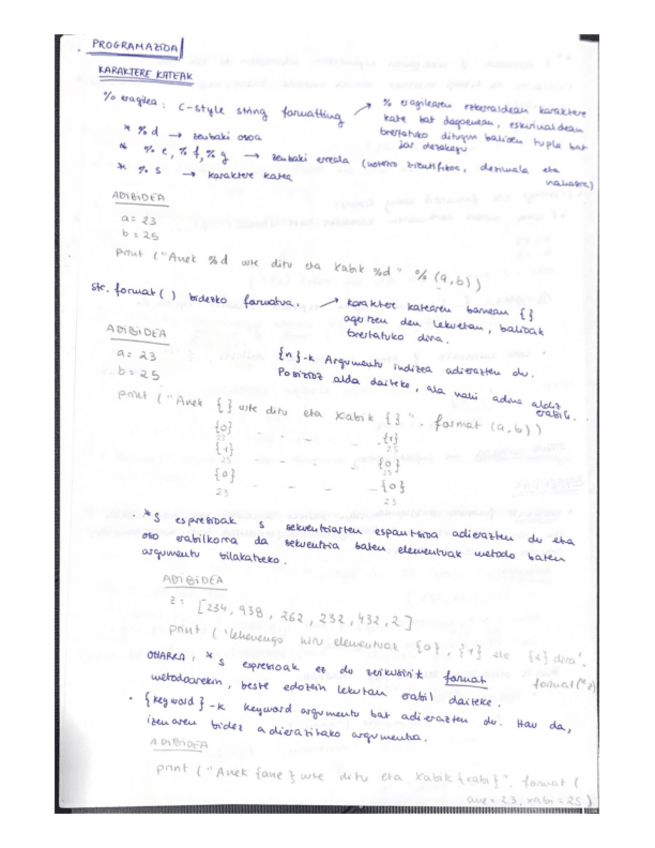 PROGRAMAZIOA
KARAKTERE KATEAK
% eragilea: C-style string formatting → % eragilearen ezkerraldean karaktere
kate bat dagoenean, eskuinaldean
txertatuko ditugun balioen tupla bat
jar dezakegu
* %d → zenbaki osoa
* %e, %f, %g → zenbaki erreala (notazio zientifikoa, dezimala eta
nahasia)
* %s → karaktere katea
ADIBIDEA
a = 23
b = 25
print ("Anek %d urte ditu eta Xabik %d" % (a,b))
str.format( ) bidezko formatua. → karaktere katearen barnean { }
agertzen den lekuetan, balioak
txertatuko dira.
ADIBIDEA
a = 23
b = 25
{n}-k Argumentu indizea adierazten du.
Posizioz alda daiteke, ala nahi adina aldiz
erabili.
print ("Anek { } urte ditu eta Xabik { }". format (a,b))
{0} - - - {1}
23 25
{1} - - - {0}
25 23
{0} - - - {0}
23 23
· *s espresioak s sekuentziaren espantsioa adierazten du eta
oso erabilkorra da sekuentzia baten elementuak metodo baten
argumentu bilakatzeko.
ADIBIDEA
z = [234, 938, 262, 232, 432, 2]
print ('Lehenengo hiru elementuak {0}, {1} eta {2} dira'.
format(*z)
OHARRA, *s espresioak ez du zerikusirik format
metodoarekin, beste edozein lekutan erabil daiteke.
· {keyword}-k keyword argumentu bat adierazten du. Hau da,
izenaren bidez adierazitako argumentua.
ADIBIDEA
print ("Anek {ane} urte ditu eta Xabik {xabi}". format (
ane = 23, xabi = 25)